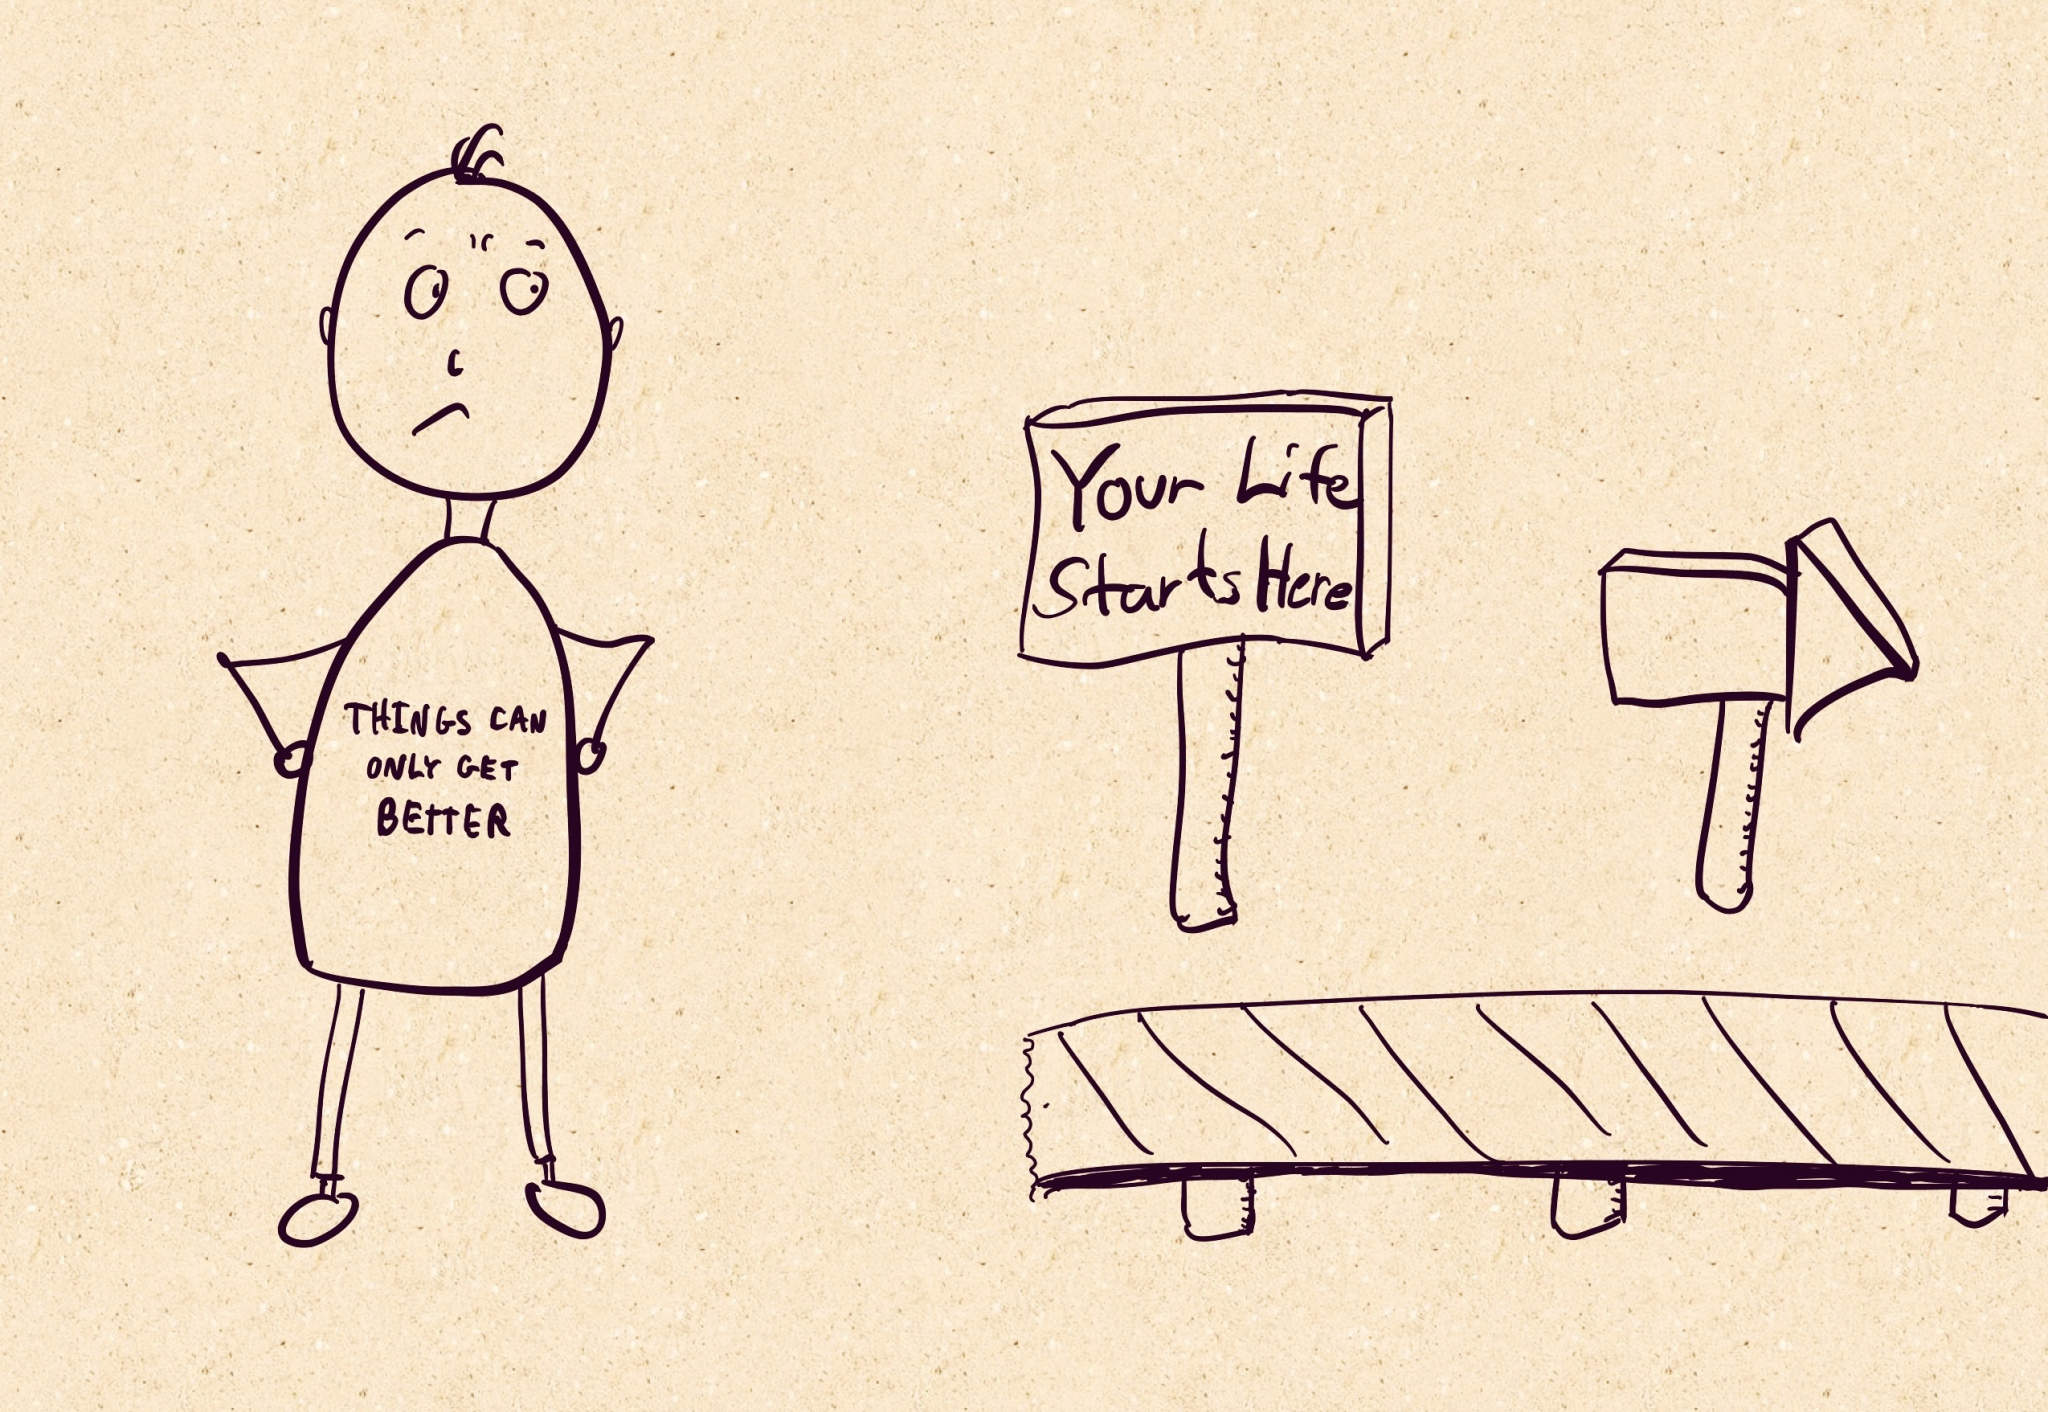 THINGS CAN
ONLY GET
BETTER
Your Life
Starts Here